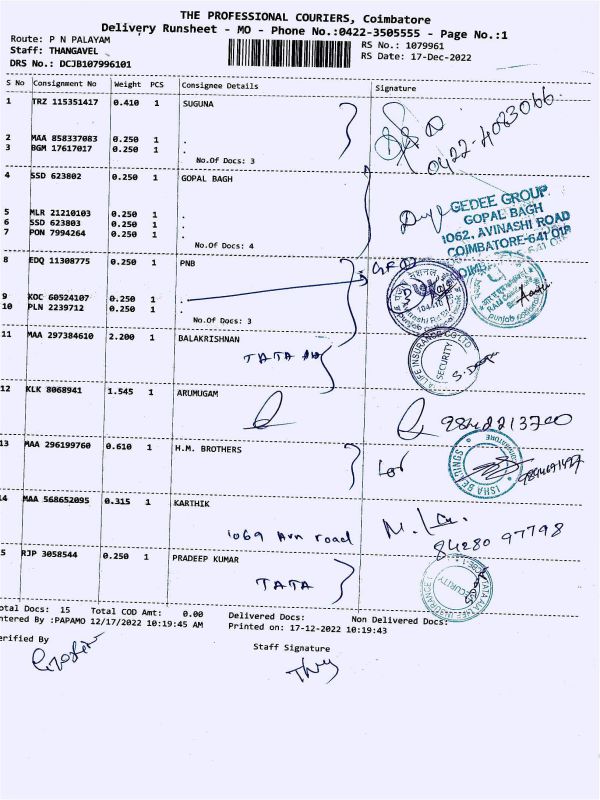 THE PROFESSIONAL COURIERS, Coimbatore
Delivery Runsheet - MO - Phone No.:0422-3505555 - Page No.:1
Route: P N PALAYAM
RS No.: 1079961
Staff: THANGAVEL
RS Date: 17-Dec-2022
DRS No.: DCJB107996101
S No Consignment No Weight PCS Consignee Details Signature
1 TRZ 115351417 0.410 1 SUGUNA
0422-4023066
2 MAA 858337083 0.250 1 .
3 BGM 17617017 0.250 1 .
No.Of Docs: 3
4 SSD 623802 0.250 1 GOPAL BAGH
GEDEE GROUP
GOPAL BAGH
1062, AVINASHI ROAD
COIMBATORE-641 018
5 MLR 21210103 0.250 1 .
6 SSD 623803 0.250 1 .
7 PON 7994264 0.250 1 .
No.Of Docs: 4
8 EDQ 11308775 0.250 1 PNB
9 KOC 60524107 0.250 1 .
10 PLN 2239712 0.250 1 .
No.Of Docs: 3
11 MAA 297384610 2.200 1 BALAKRISHNAN
TATA
LIFE INSURANCE CO LTD
SECURITY
12 KLK 8068941 1.545 1 ARUMUGAM
9842213700
13 MAA 296199760 0.610 1 H.M. BROTHERS
ISHA BEARINGS
COIMBATORE
14 MAA 568652095 0.315 1 KARTHIK
1069 Avn road
84280 97798
5 RJP 3058544 0.250 1 PRADEEP KUMAR
TATA
SECURITY
otal Docs: 15 Total COD Amt: 0.00 Delivered Docs: Non Delivered Docs:
ntered By :PAPAMO 12/17/2022 10:19:45 AM Printed on: 17-12-2022 10:19:43
erified By
Staff Signature